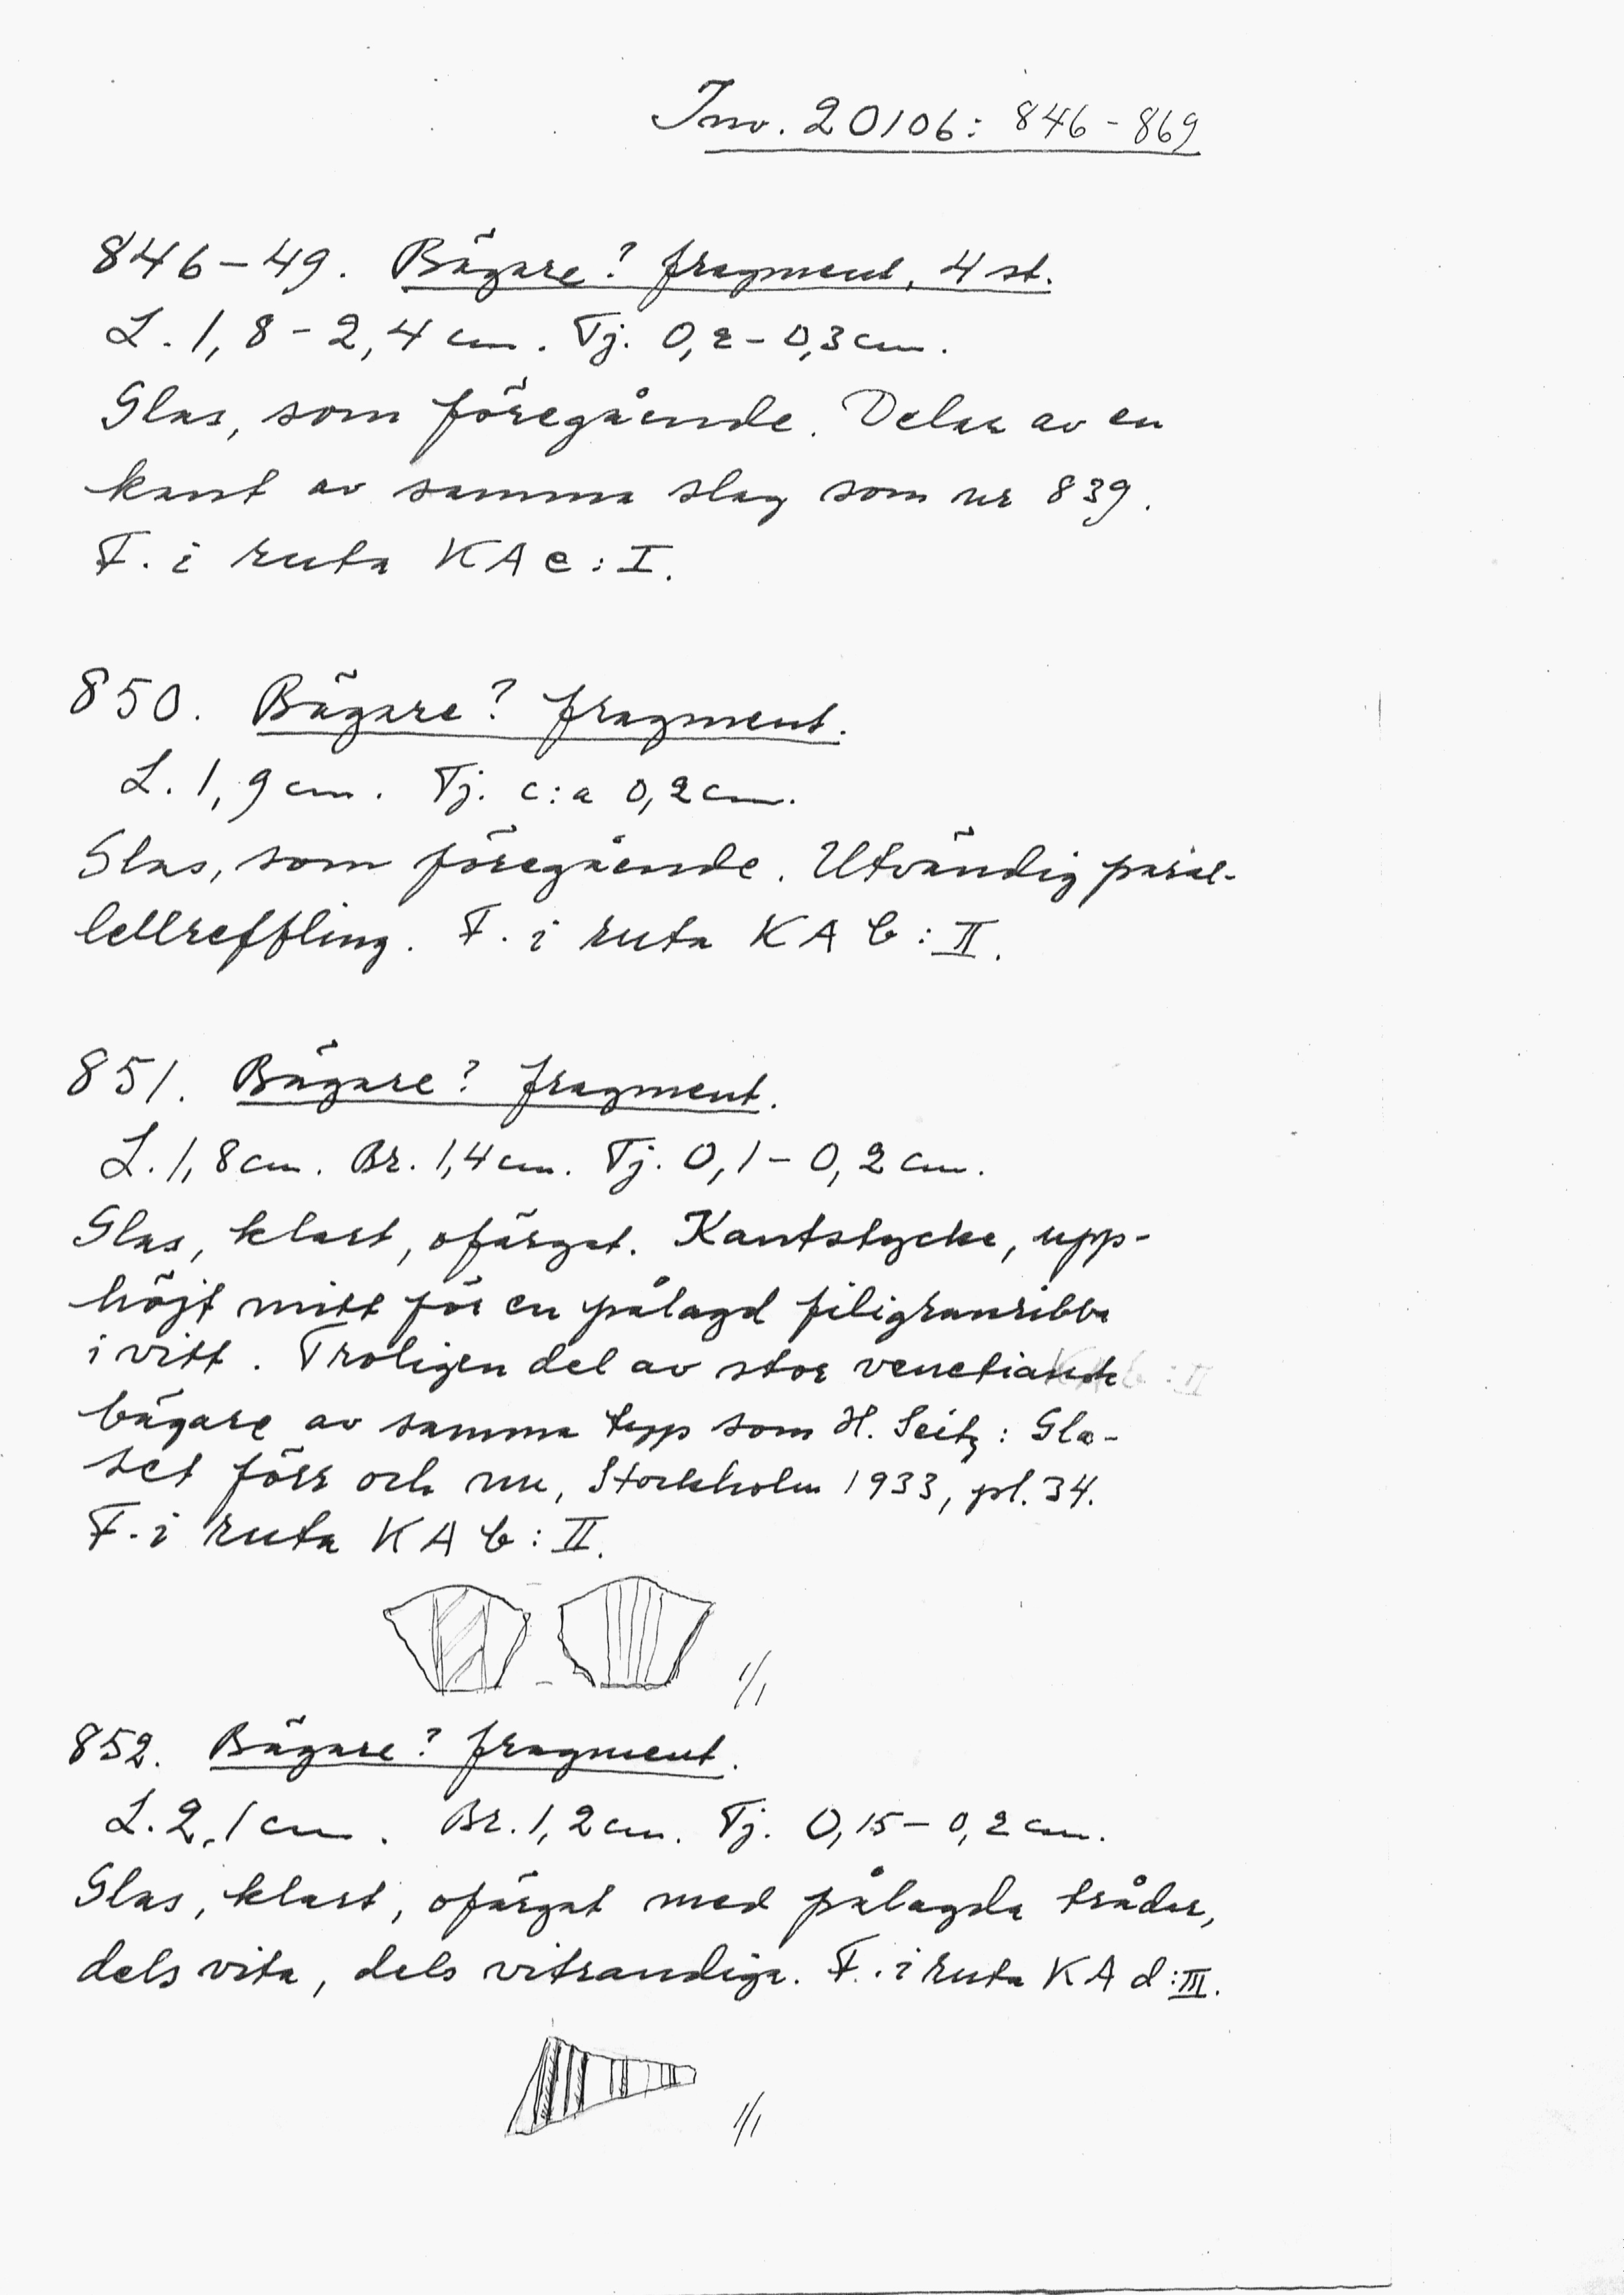 Inv. 20106: 846-869
846-49. Bägare? fragment, 4 st.
L. 1,8-2,4 cm. Tj. 0,2-0,3 cm.
Glas, som föregående. Delar av en
kant av samma slag som nr 839.
F. i ruta KA e: I.
850. Bägare? fragment.
L. 1,9 cm. Tj. c:a 0,2 cm.
Glas, som föregående. Utvändig paral-
lellreffling. F. i ruta KA b: II.
851. Bägare? fragment.
L. 1,8 cm. Br. 1,4 cm. Tj. 0,1-0,2 cm.
Glas, klart, ofärgat. Kantstycke, upp-
höjt mitt för en pålagd filigranribba
i vitt. Troligen del av stor venetiansk
bägare av samma typp som H. Seitz: Gla-
set förr och nu, Stockholm 1933, pl. 34.
F. i ruta KA b: II.
1/1
852. Bägare? fragment.
L. 2,1 cm. Br. 1,2 cm. Tj. 0,15-0,2 cm.
Glas, klart, ofärgat med pålagda trådar,
dels vita, dels vitrandiga. F. i ruta KA d: III.
1/1